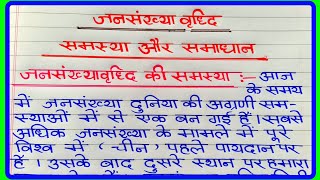 जनसंख्या वृध्दि
समस्या और समाधान
जनसंख्यावृध्दि की समस्या :- आज
के समय
में जनसंख्या दुनिया की अग्रणी सम-
स्याओं में से एक बन गई हैं। सबसे
अधिक जनसंख्या के मामले में पूरे
विश्व में 'चीन' पहले पायदान पर
हैं। उसके बाद दुसरे स्थान पर हमारा